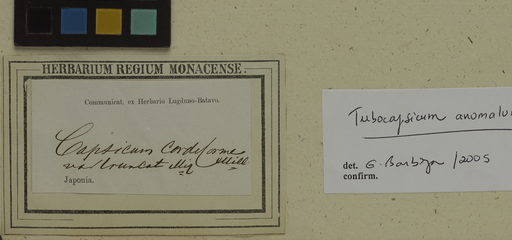 HERBARIUM REGIUM MONACENSE.
Communicat. ex Herbario Lugduno-Batavo.
Capsicum cordiforme
var truncat Miq Mill
Japonia.
Tubocapsicum anomalu
det. G. Barboza /2005
confirm.